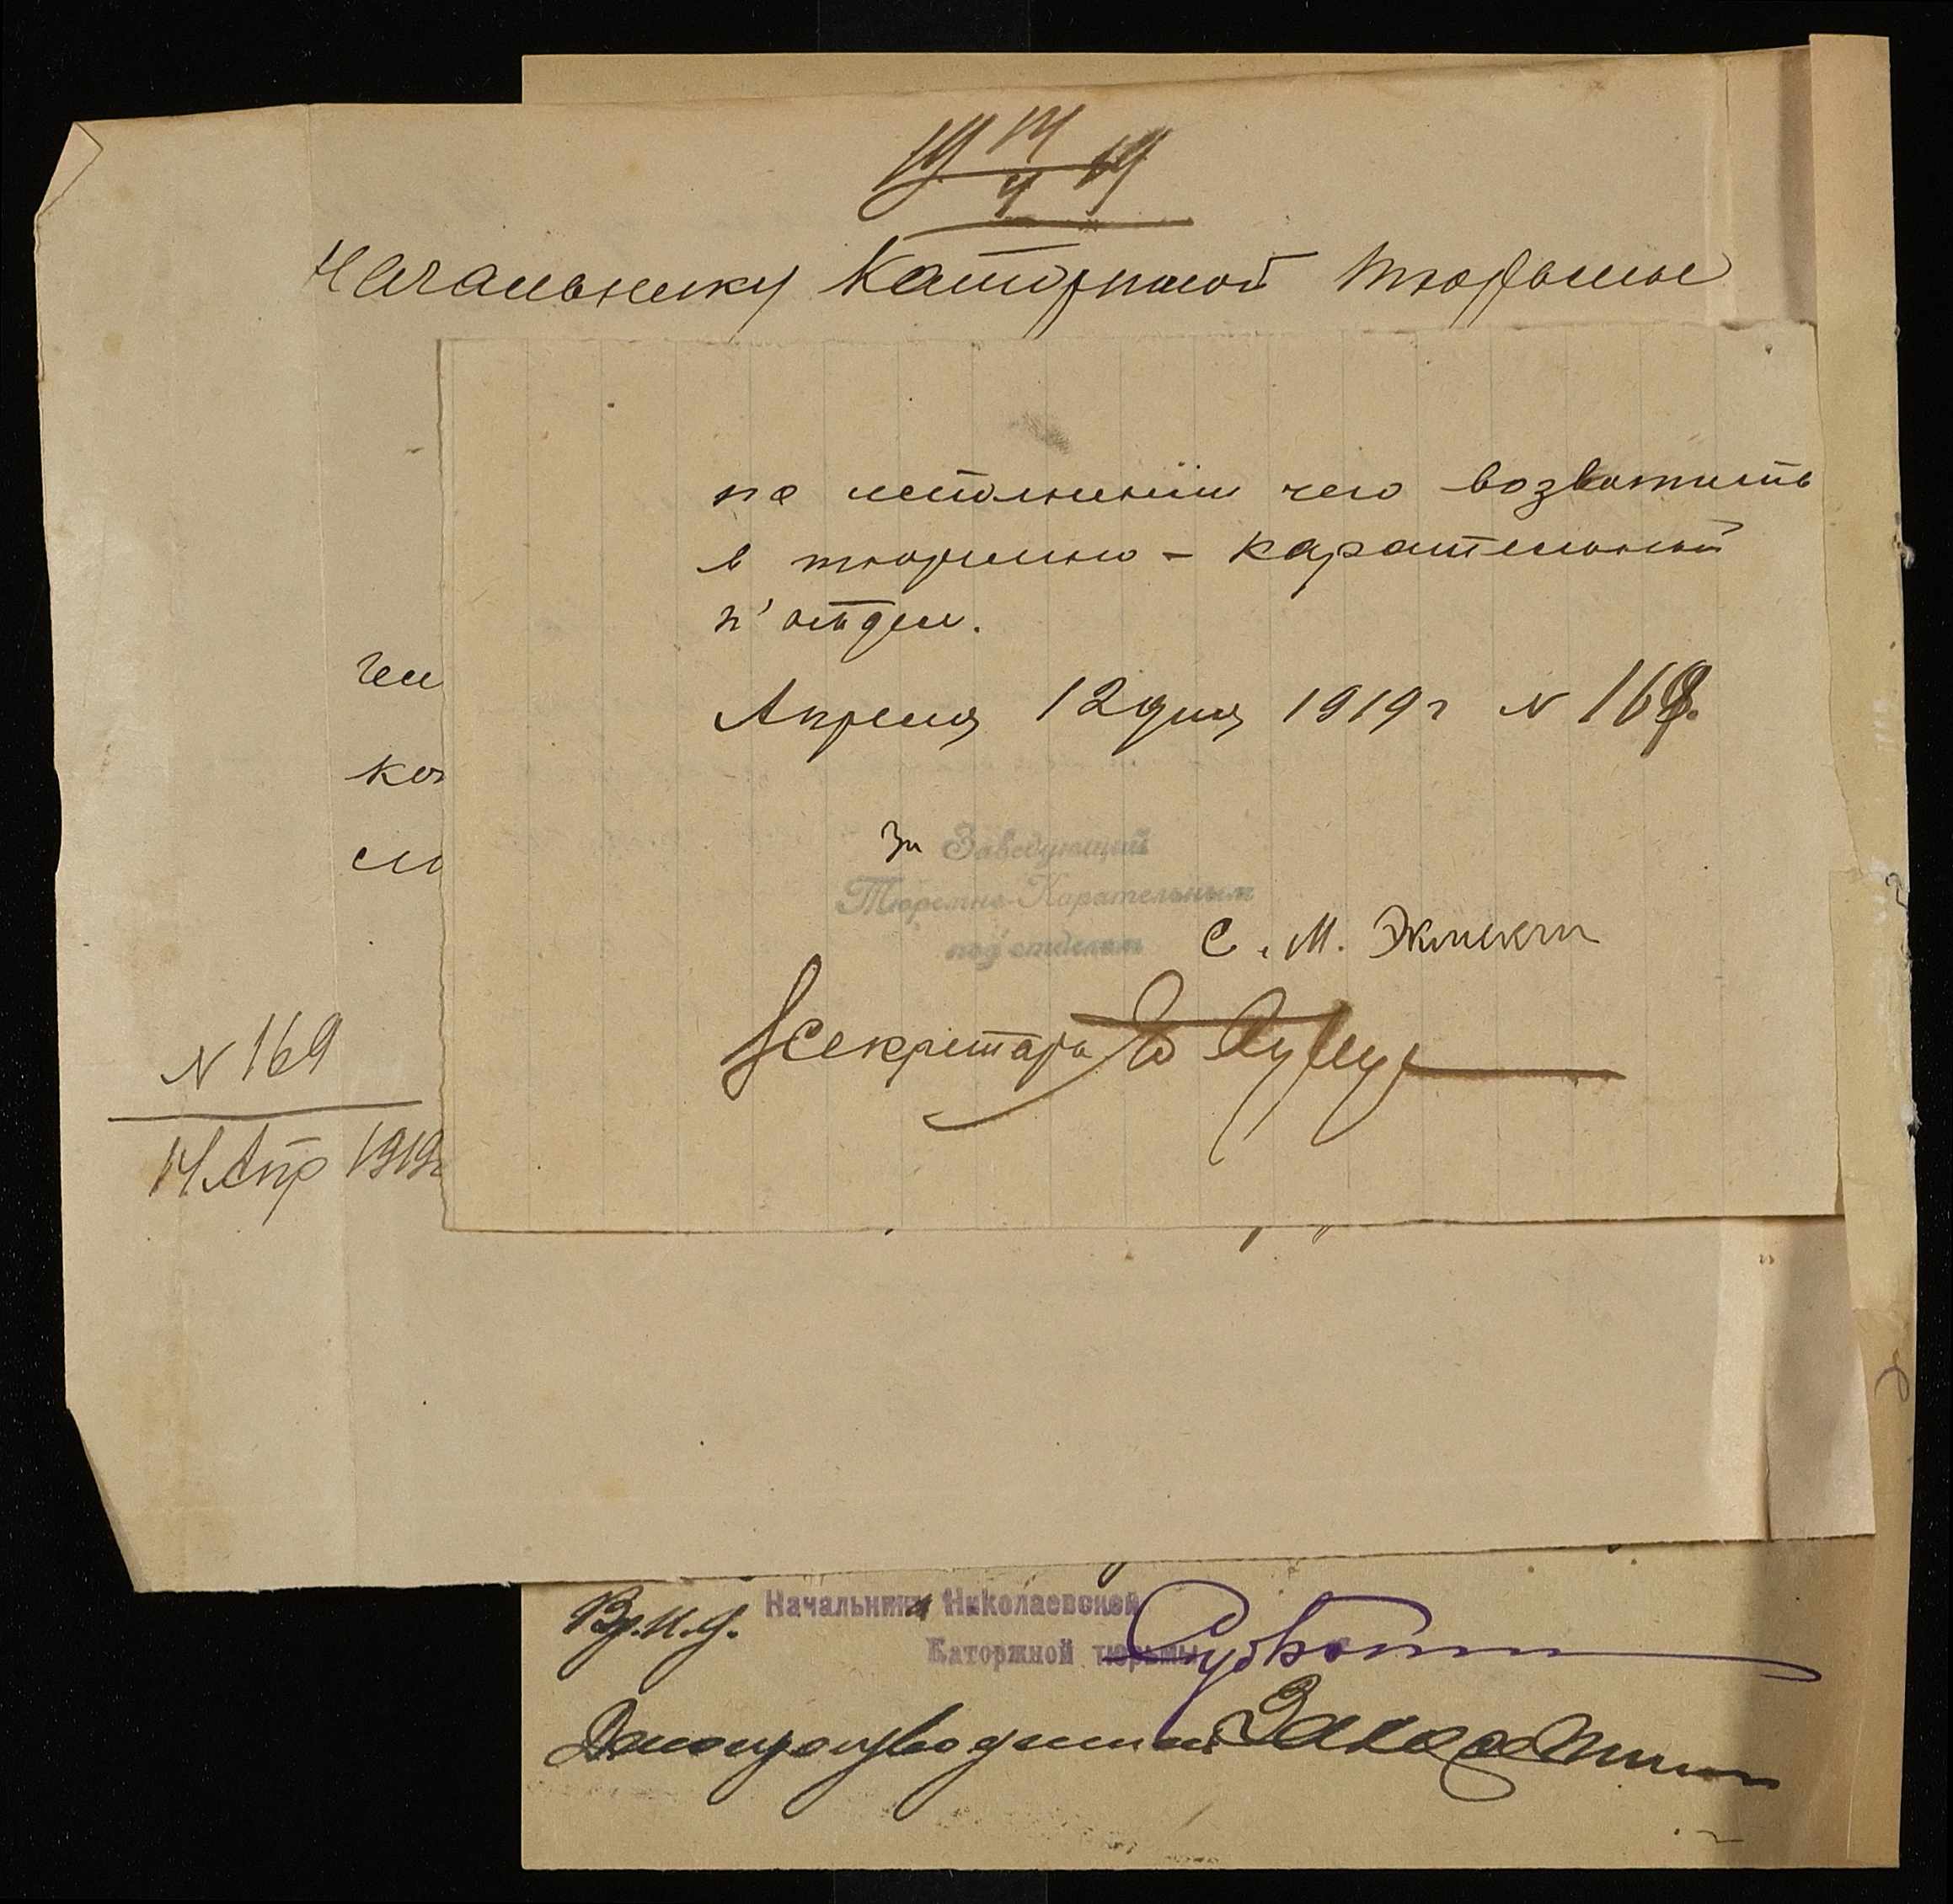 19 14/4 19
Начальнику Каторжной тюрьмы
по исполнении чего возватить
в тюремно-карательный
п'отдел.
Апреля 12 дня 1919 г N 168.
За Заведующий
Тюремно-Карательным
под'отделом
С. М.
Секретарь
чеи
ко
сл
N 169
14 Апр 1919г
Вр.И.Д. Начальника Николаевской
Каторжной тюрьмы
Делопроизводитель